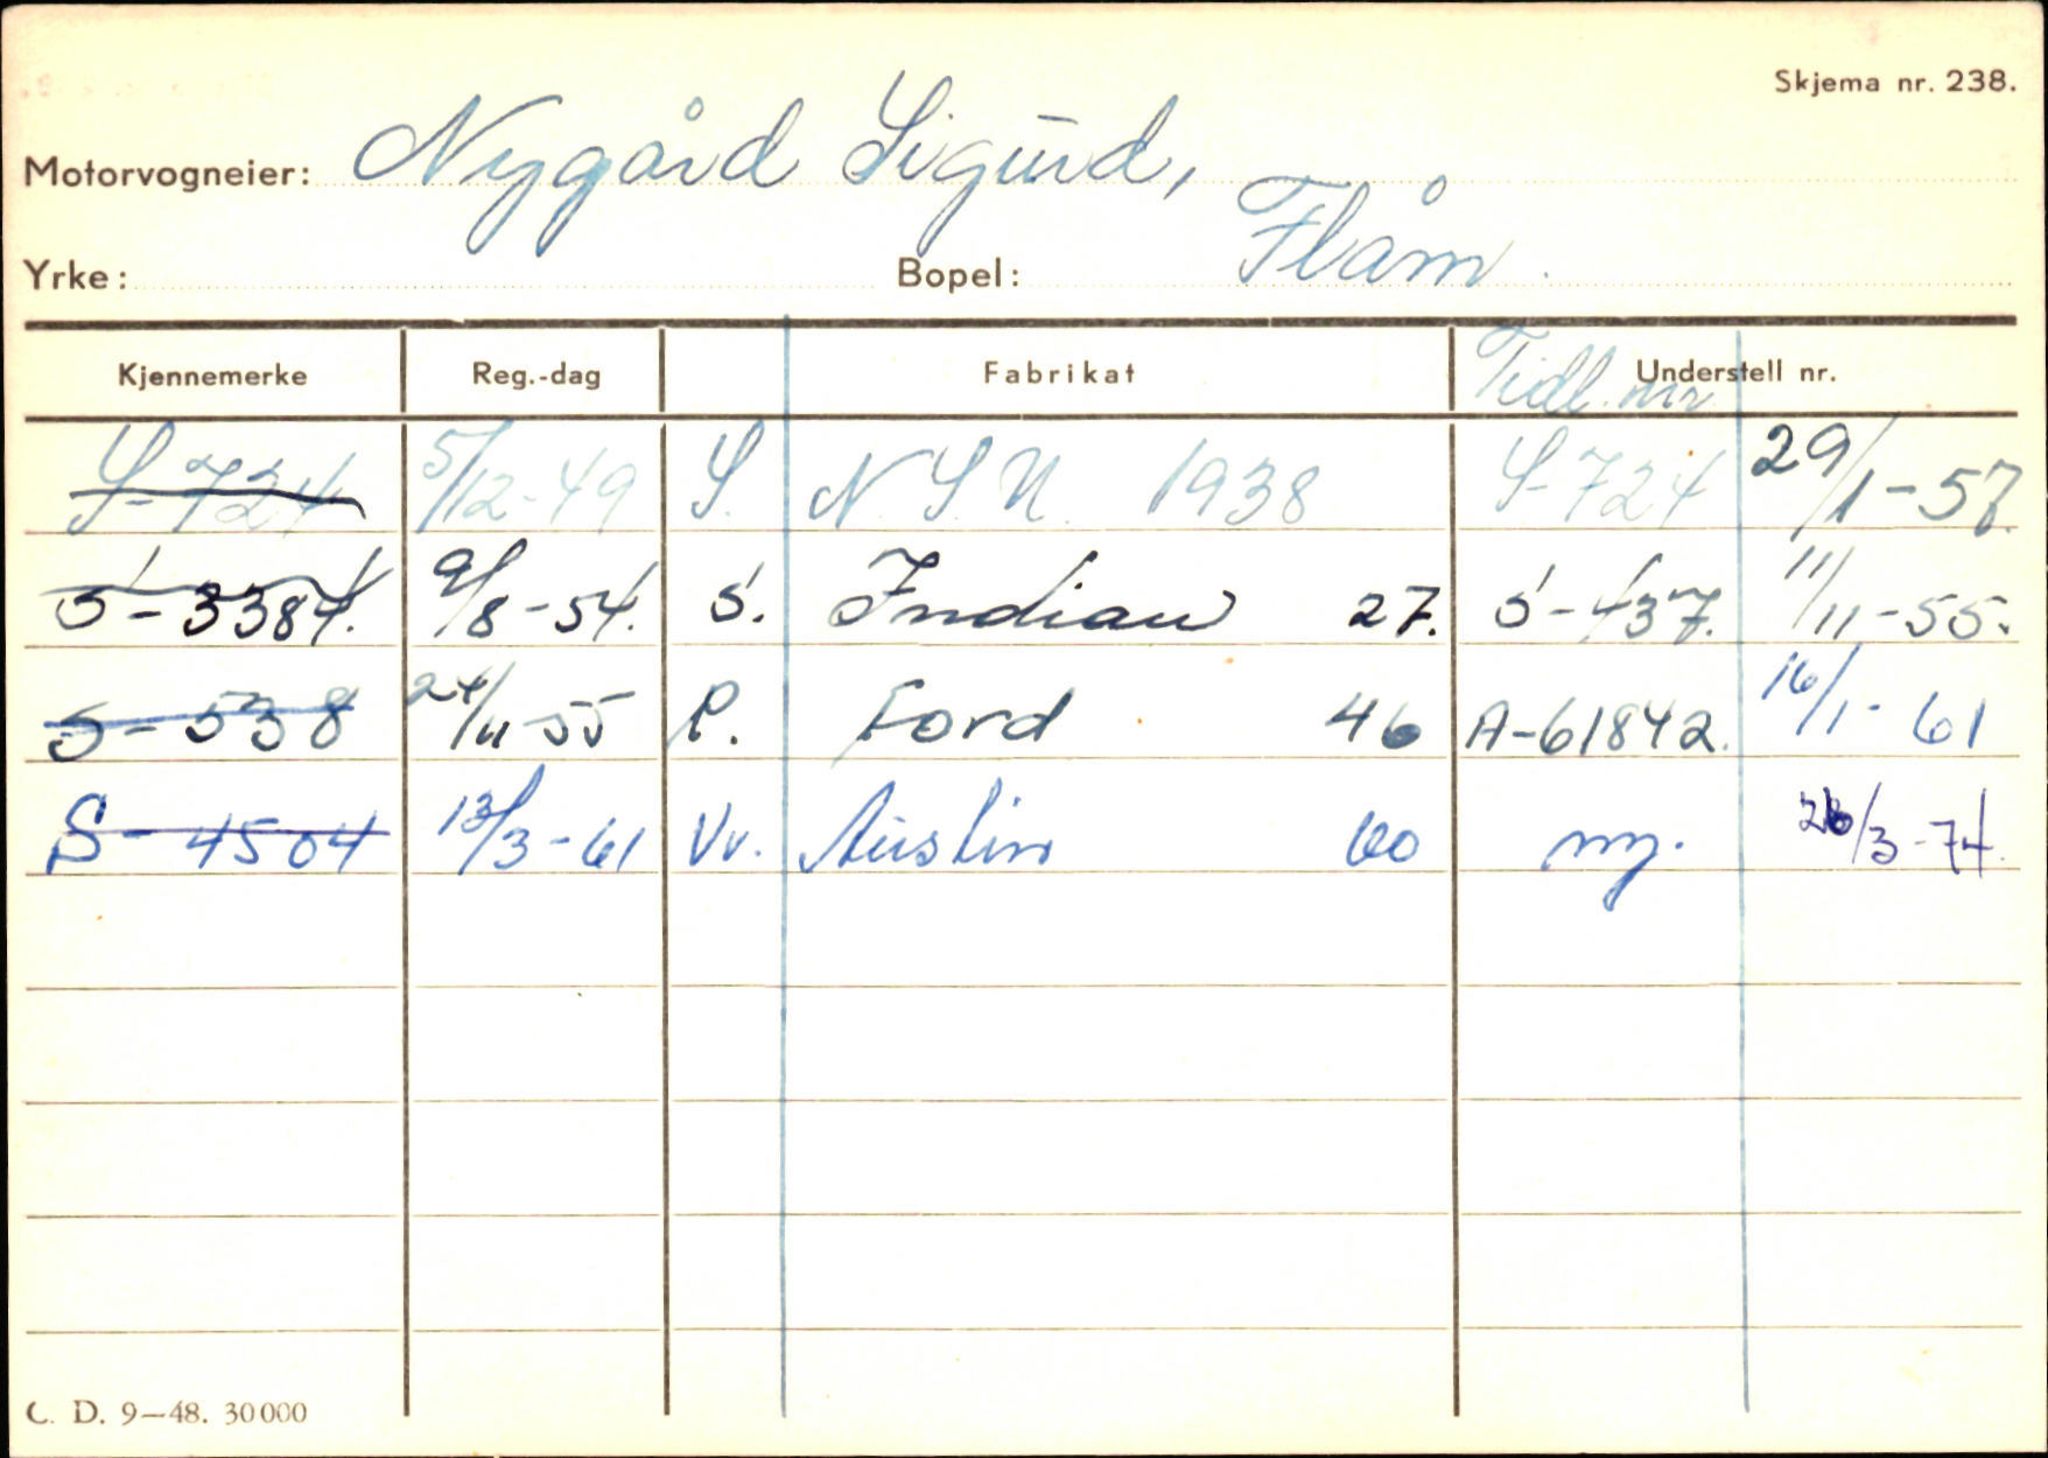 Skjema nr. 238.
Motorvogneier: Nygård Sigurd,
Yrke: Bopel: Flåm.
Kjennemerke Reg.-dag Fabrikat Tidl. nr Understell nr.
S-724 5/12-49 S. N.S.U. 1938 S-724 29/1-57.
S-3384. 9/8-54. S. Indian 27. S-437. 11/11-55.
S-538 24/11-55 P. Ford 46 A-61842. 16/1-61
S-4504 13/3-61 Vv. Austin 60 ny. /3-74.
C. D. 9—48. 30000